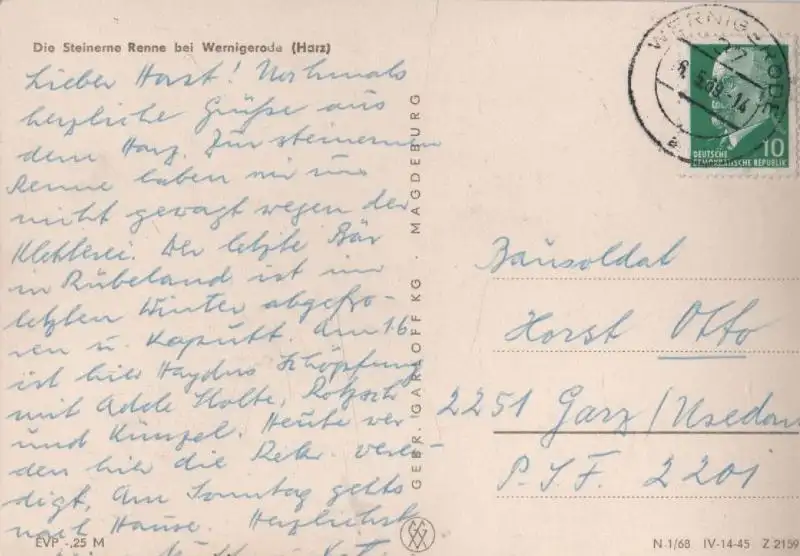 Die Steinerne Renne bei Wernigerode (Harz)
Lieber Horst! Nochmals
herzliche Grüße aus
dem Harz. Zur steinernen
Renne haben wir uns
nicht gewagt wegen der
Kletterei. Der letzte Bär
in Rübeland ist im
letzten Winter abgefro-
ren u. kaputt. Am 16.
ist hier Haydns Schöpfung
mit Adele Stolte, Rotzsch
und Künzel. Heute wer
den hier die Rekr. verei-
digt. Am Sonntag gehts
nach Hause. Herzlichst
GEBR. GARLOFF KG · MAGDEBURG
EVP -,25 M
WERNIGERODE
a
DEUTSCHE
DEMOKRATISCHE REPUBLIK
10
Bausoldat
Horst Otto
2251 Garz/Usedom
P.S.F. 2201
N 1/68 IV-14-45 Z 2159